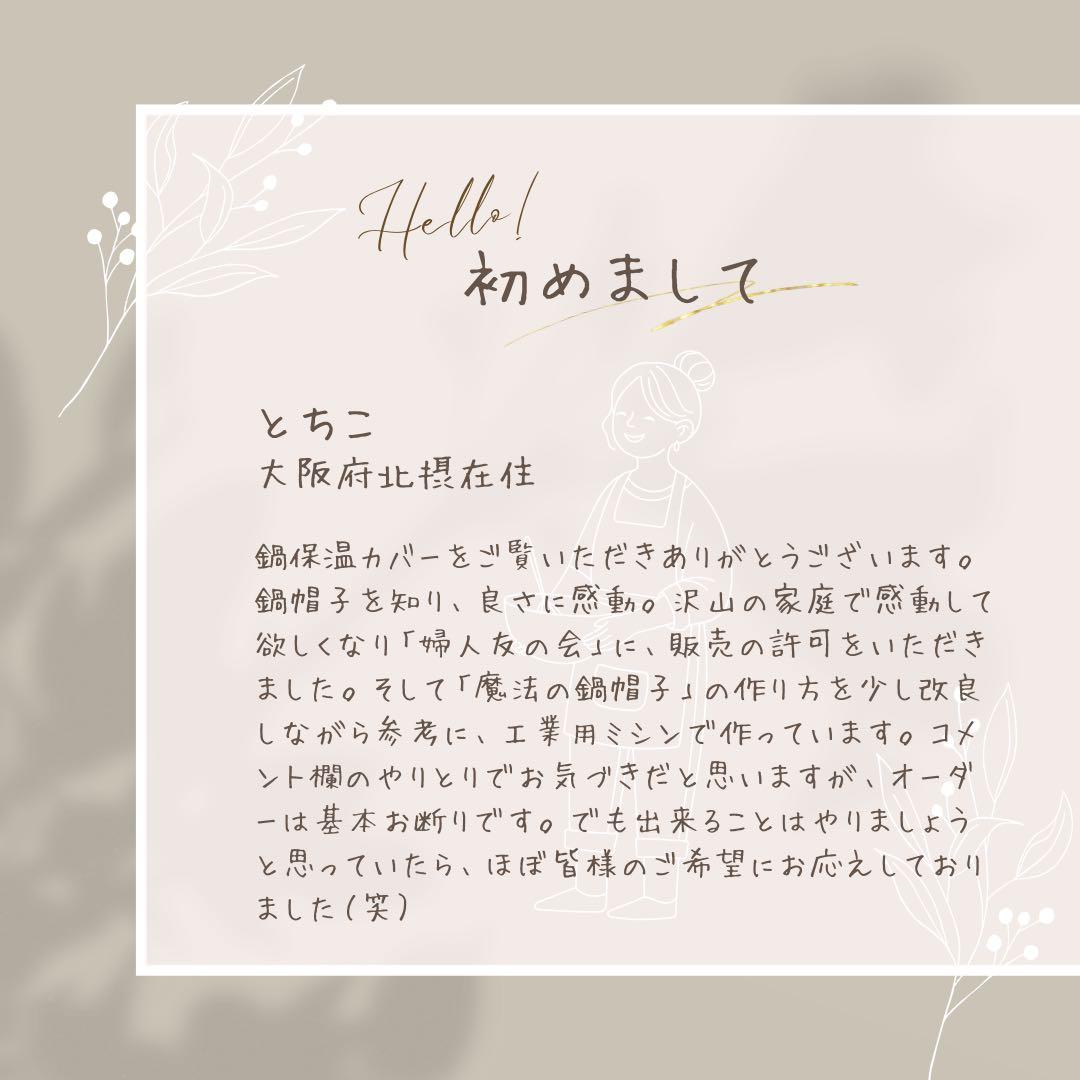 Hello!
初めまして
とちこ
大阪府北摂在住
鍋保温カバーをご覧いただきありがとうございます。
鍋帽子を知り、良さに感動。沢山の家庭で感動して
欲しくなり「婦人友の会」に、販売の許可をいただき
ました。そして「魔法の鍋帽子」の作り方を少し改良
しながら参考に、工業用ミシンで作っています。コメ
ント欄のやりとりでお気づきだと思いますが、オーダ
ーは基本お断りです。でも出来ることはやりましょう
と思っていたら、ほぼ皆様のご希望にお応えしており
ました(笑)